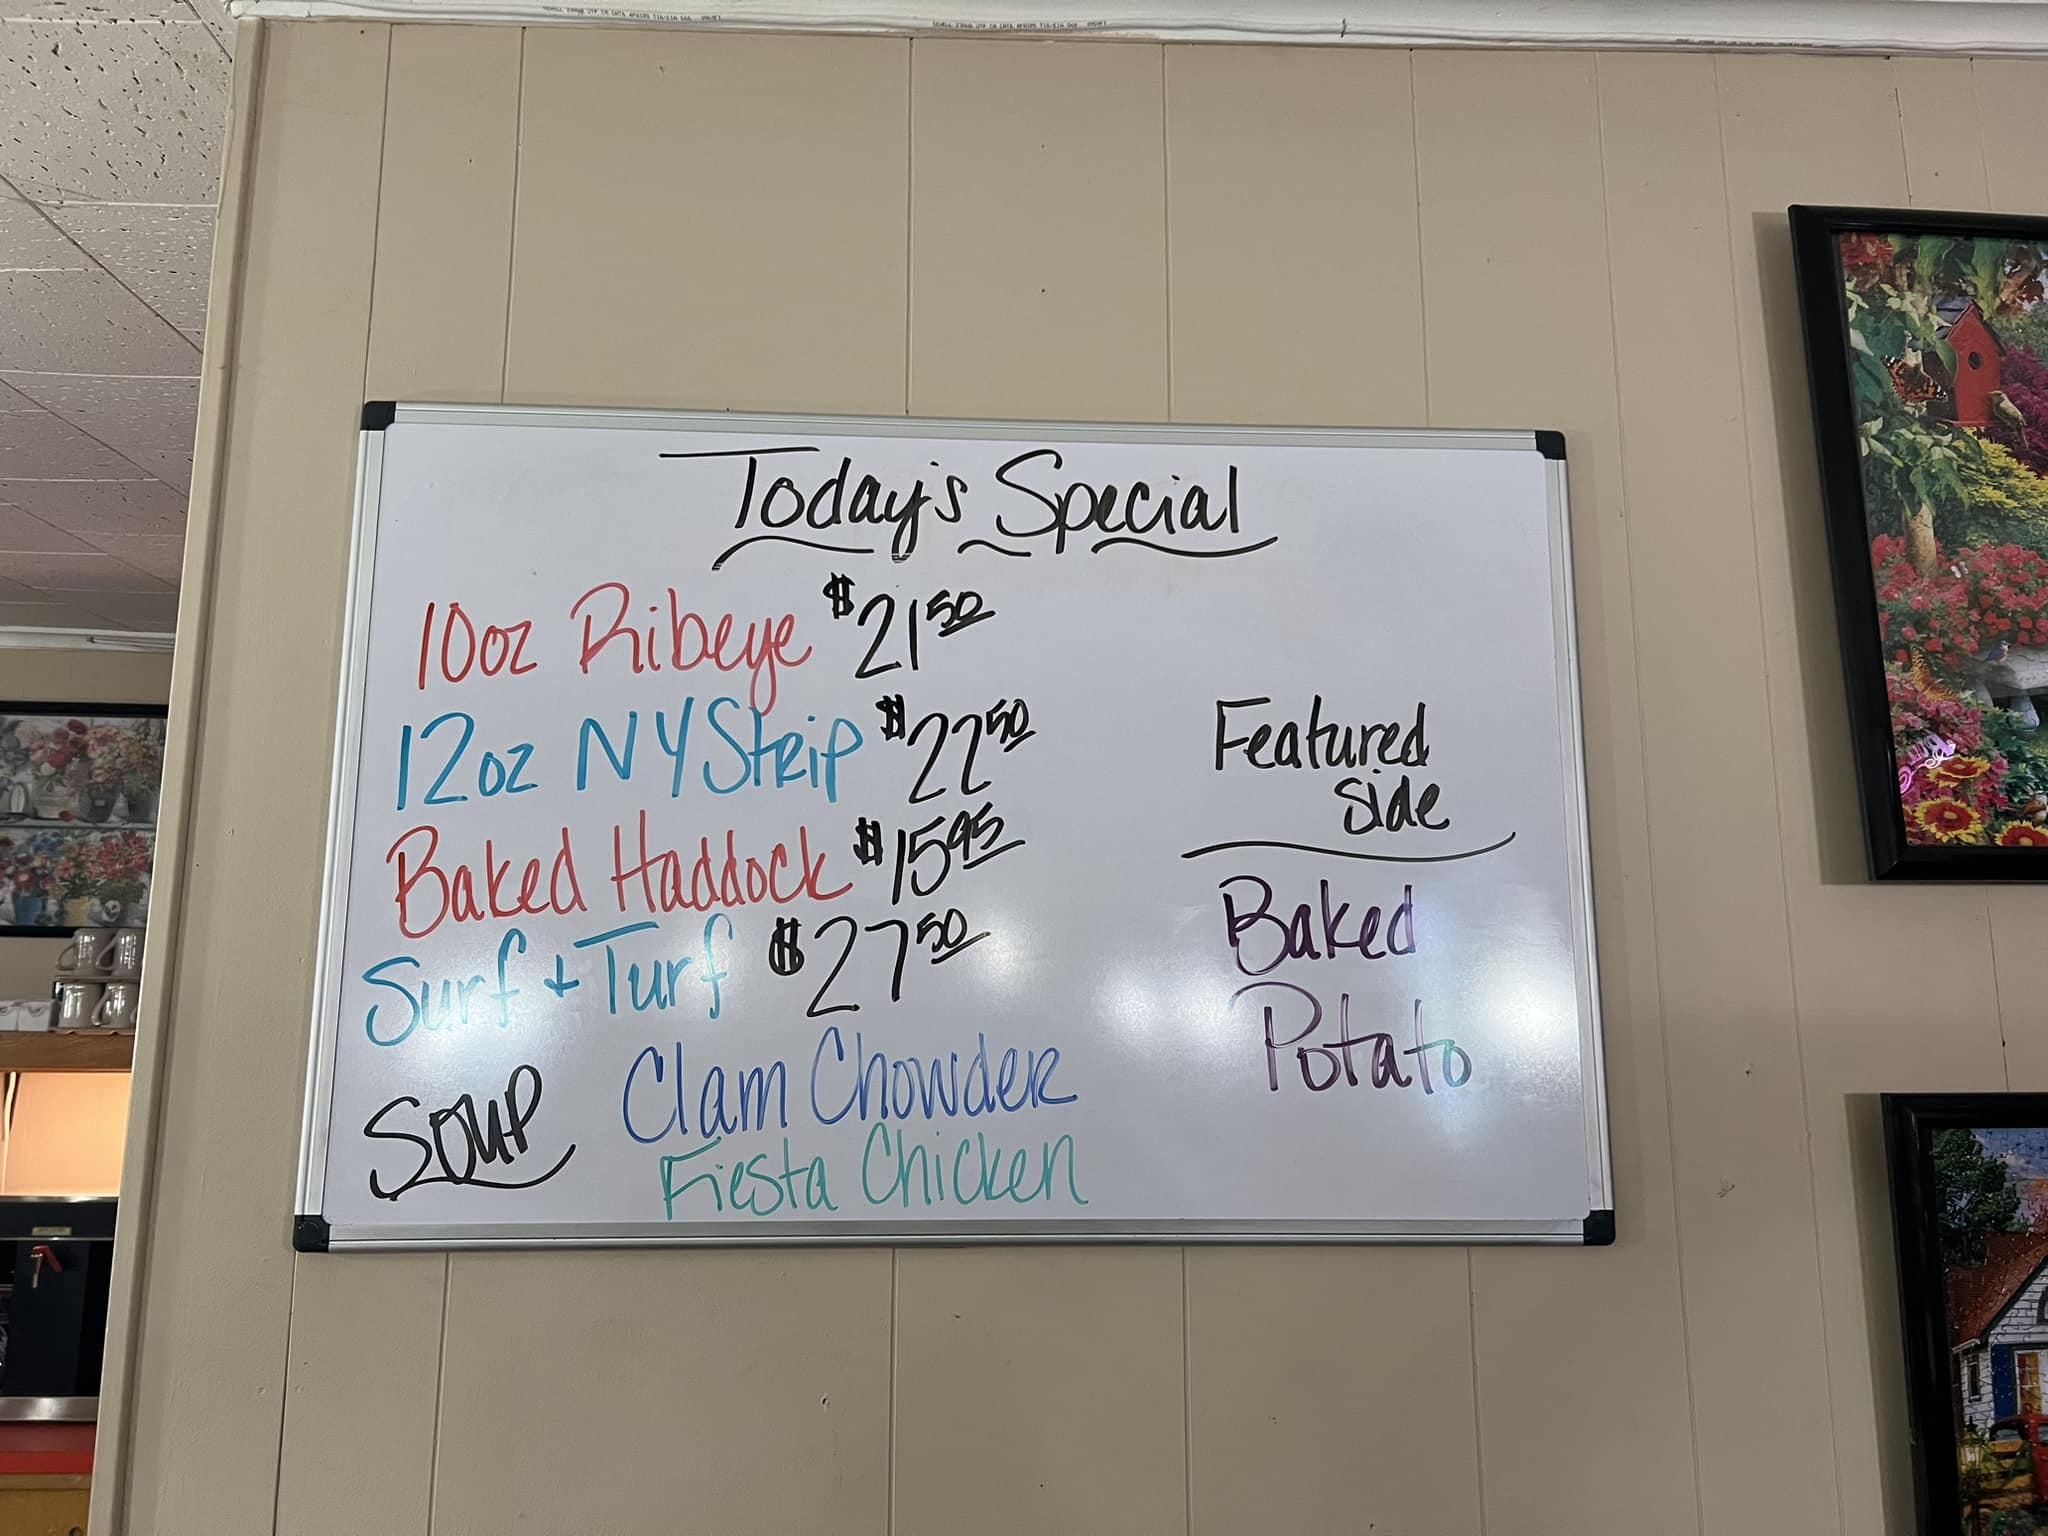 Today's Special
10oz Ribeye $21.50
12oz NY Strip $22.50
Baked Haddock $15.95
Surf + Turf $27.50
Soup Clam Chowder
Fiesta Chicken
Featured
Side
Baked
Potato